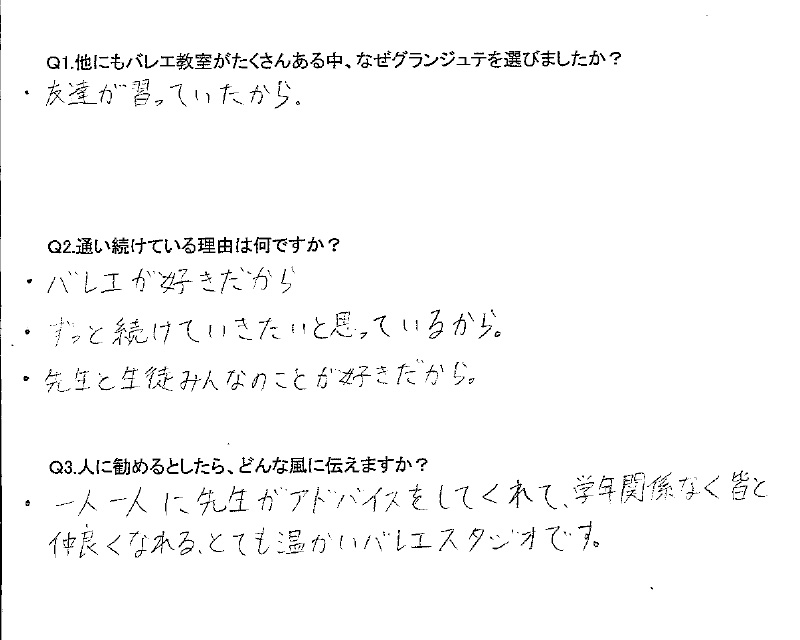 Q1.他にもバレエ教室がたくさんある中、なぜグランジュテを選びましたか？
・友達が習っていたから。
Q2.通い続けている理由は何ですか？
・バレエが好きだから
・ずっと続けていきたいと思っているから。
・先生と生徒みんなのことが好きだから。
Q3.人に勧めるとしたら、どんな風に伝えますか？
・一人一人に先生がアドバイスをしてくれて、学年関係なく皆と
仲良くなれる、とても温かいバレエスタジオです。